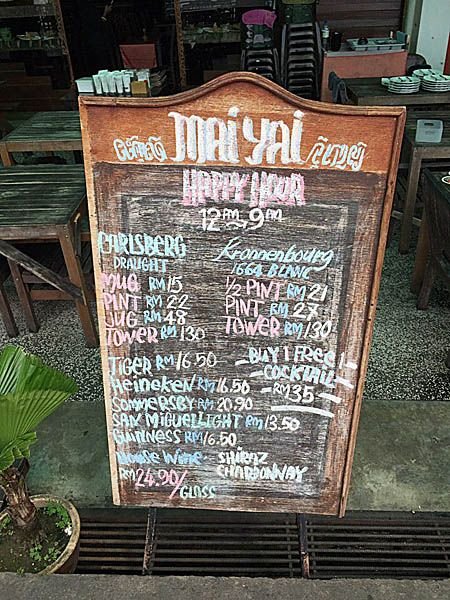 MAIYAI
HAPPY HOUR
12PM - 9PM
CARLSBERG
DRAUGHT
MUG RM 15
PINT RM 22
JUG RM 48
TOWER RM 130
Kronnenbourg
1664 BLANC
1/2 PINT RM 21
PINT RM 27
TOWER RM 130
BUY 1 FREE 1
COCKTAIL
RM 35
TIGER RM 16.50
HEINEKEN RM 16.50
SOMMERSBY RM 20.90
SAN MIGUEL LIGHT RM 13.50
GUINNESS RM 16.50
HOUSE WINE SHIRAZ
CHARDONNAY
RM 24.90/GLASS